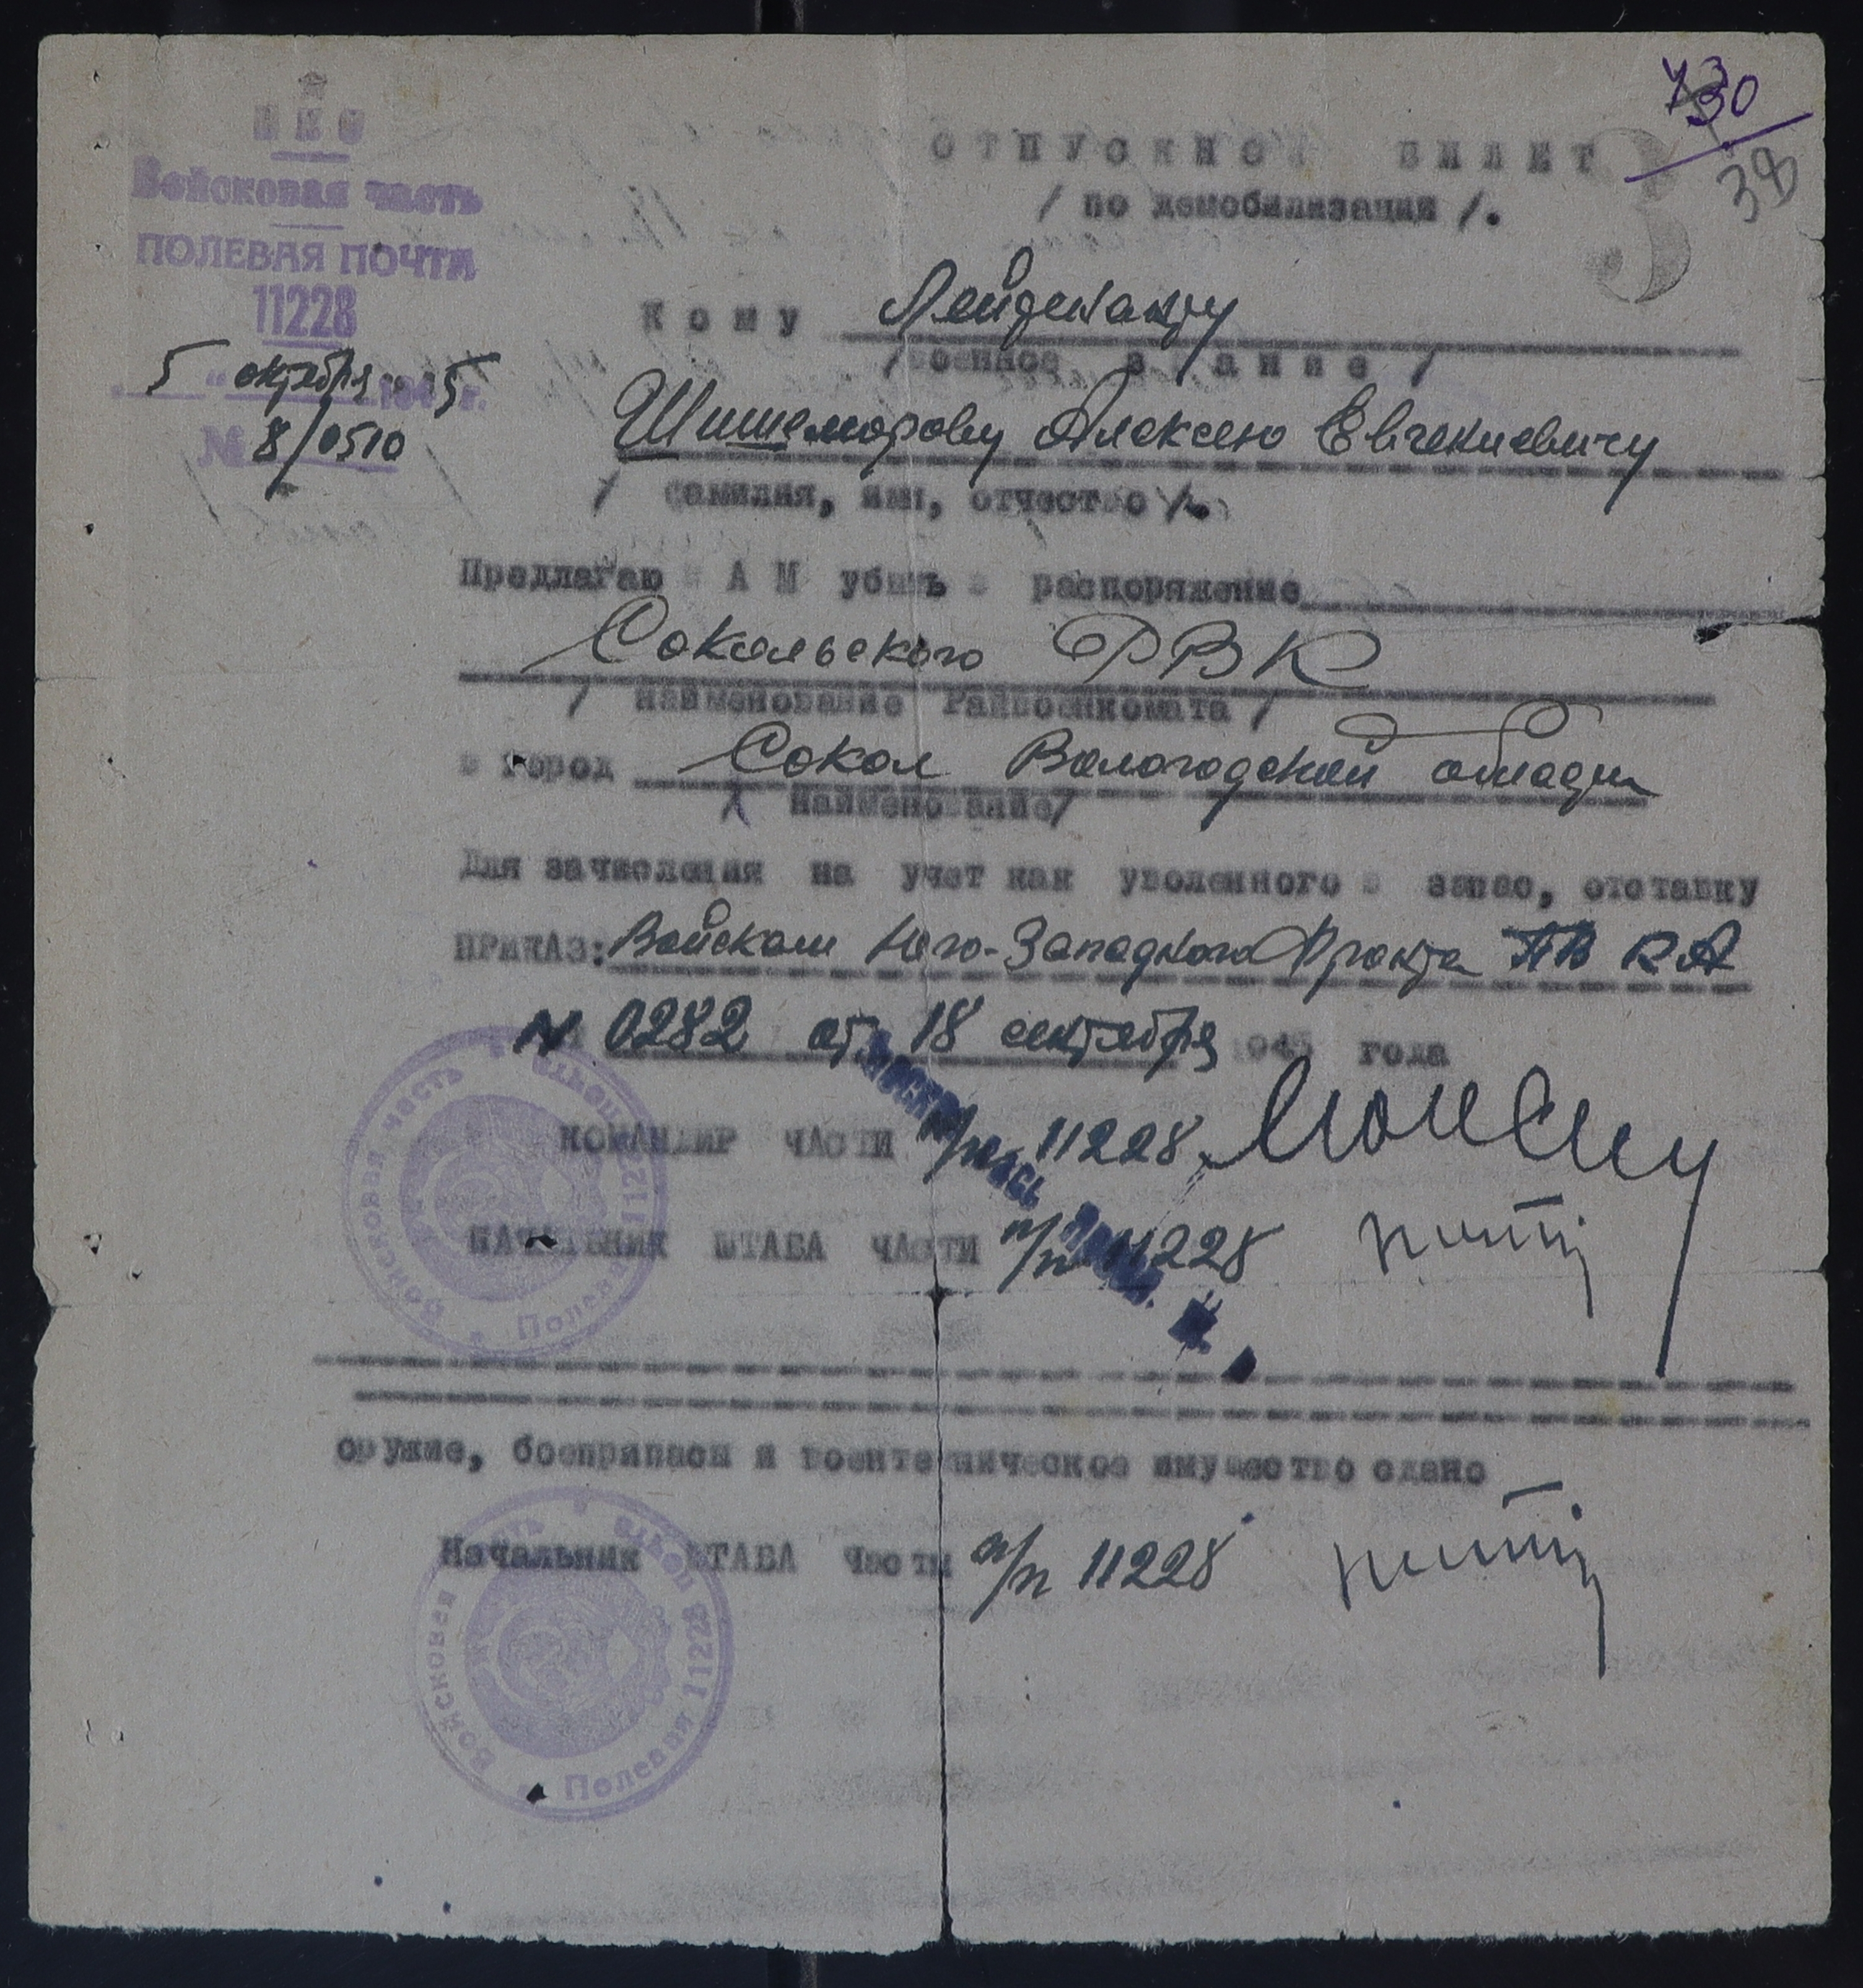 НКО
Войсковая часть
ПОЛЕВАЯ ПОЧТА
11228
5 " октября 1945 г.
№ 8/0510
730
38
3
ОТПУСКНОЙ БИЛЕТ
/ по демобилизации /.
Кому Лейтенанту
/военное звание/
Шишеморову Алексею Евгениевичу
/ фамилия, имя, отчество /.
Предлагаю ВАМ убыть в распоряжение
Сокольского РВК
/ наименование Райвоенкомата /
в город Сокол Вологодской области
/ наименование/
Для зачисления на учет как уволенного в запас, отставку
ПРИКАЗ: Войскам Юго-Западного Фронта ПВО КА
№ 0282 от 18 сентября 1945 года
КОМАНДИР ЧАСТИ п/п 11228
НАЧАЛЬНИК ШТАБА ЧАСТИ п/п 11228
Войсковая часть Полевая почта 11228
оружие, боеприпасы и воентехническое имущество сдано
Начальник ШТАБА Части п/п 11228
Войсковая часть Полевая почта 11228